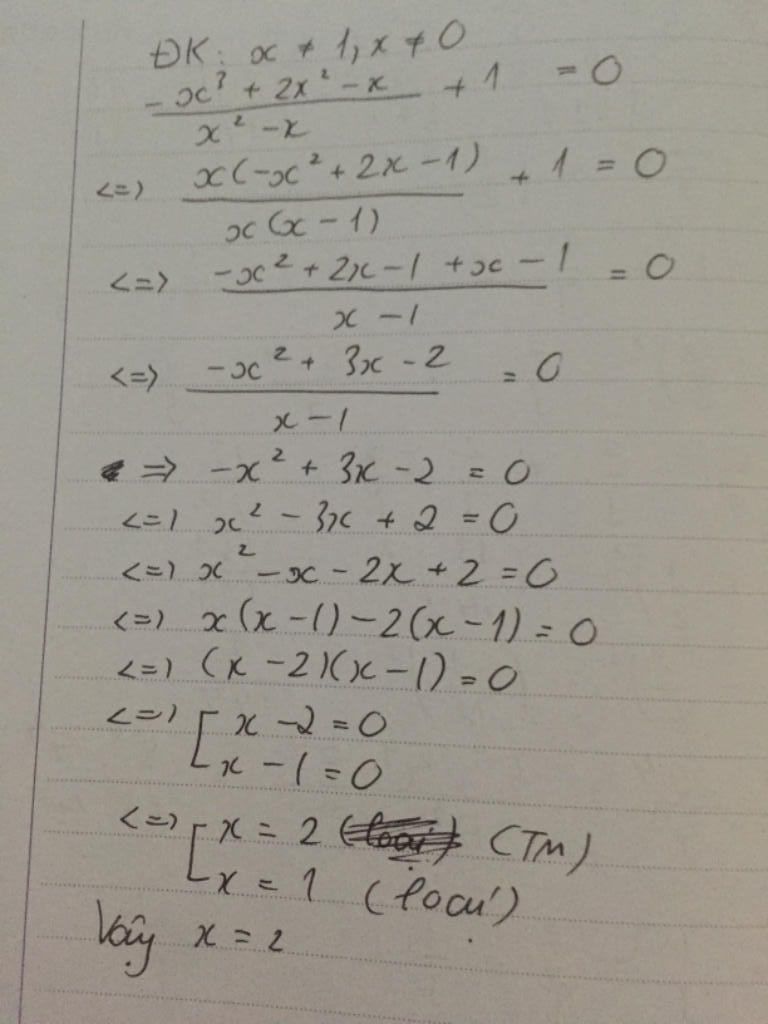 ĐK: x ≠ 1, x ≠ 0
(-x³ + 2x² - x)/(x² - x) + 1 = 0
<=> x(-x² + 2x - 1)/x(x - 1) + 1 = 0
<=> (-x² + 2x - 1 + x - 1)/(x - 1) = 0
<=> (-x² + 3x - 2)/(x - 1) = 0
=> -x² + 3x - 2 = 0
<=> x² - 3x + 2 = 0
<=> x² - x - 2x + 2 = 0
<=> x(x - 1) - 2(x - 1) = 0
<=> (x - 2)(x - 1) = 0
<=> [ x - 2 = 0
x - 1 = 0
<=> [ x = 2 (TM)
x = 1 (loại)
Vậy x = 2